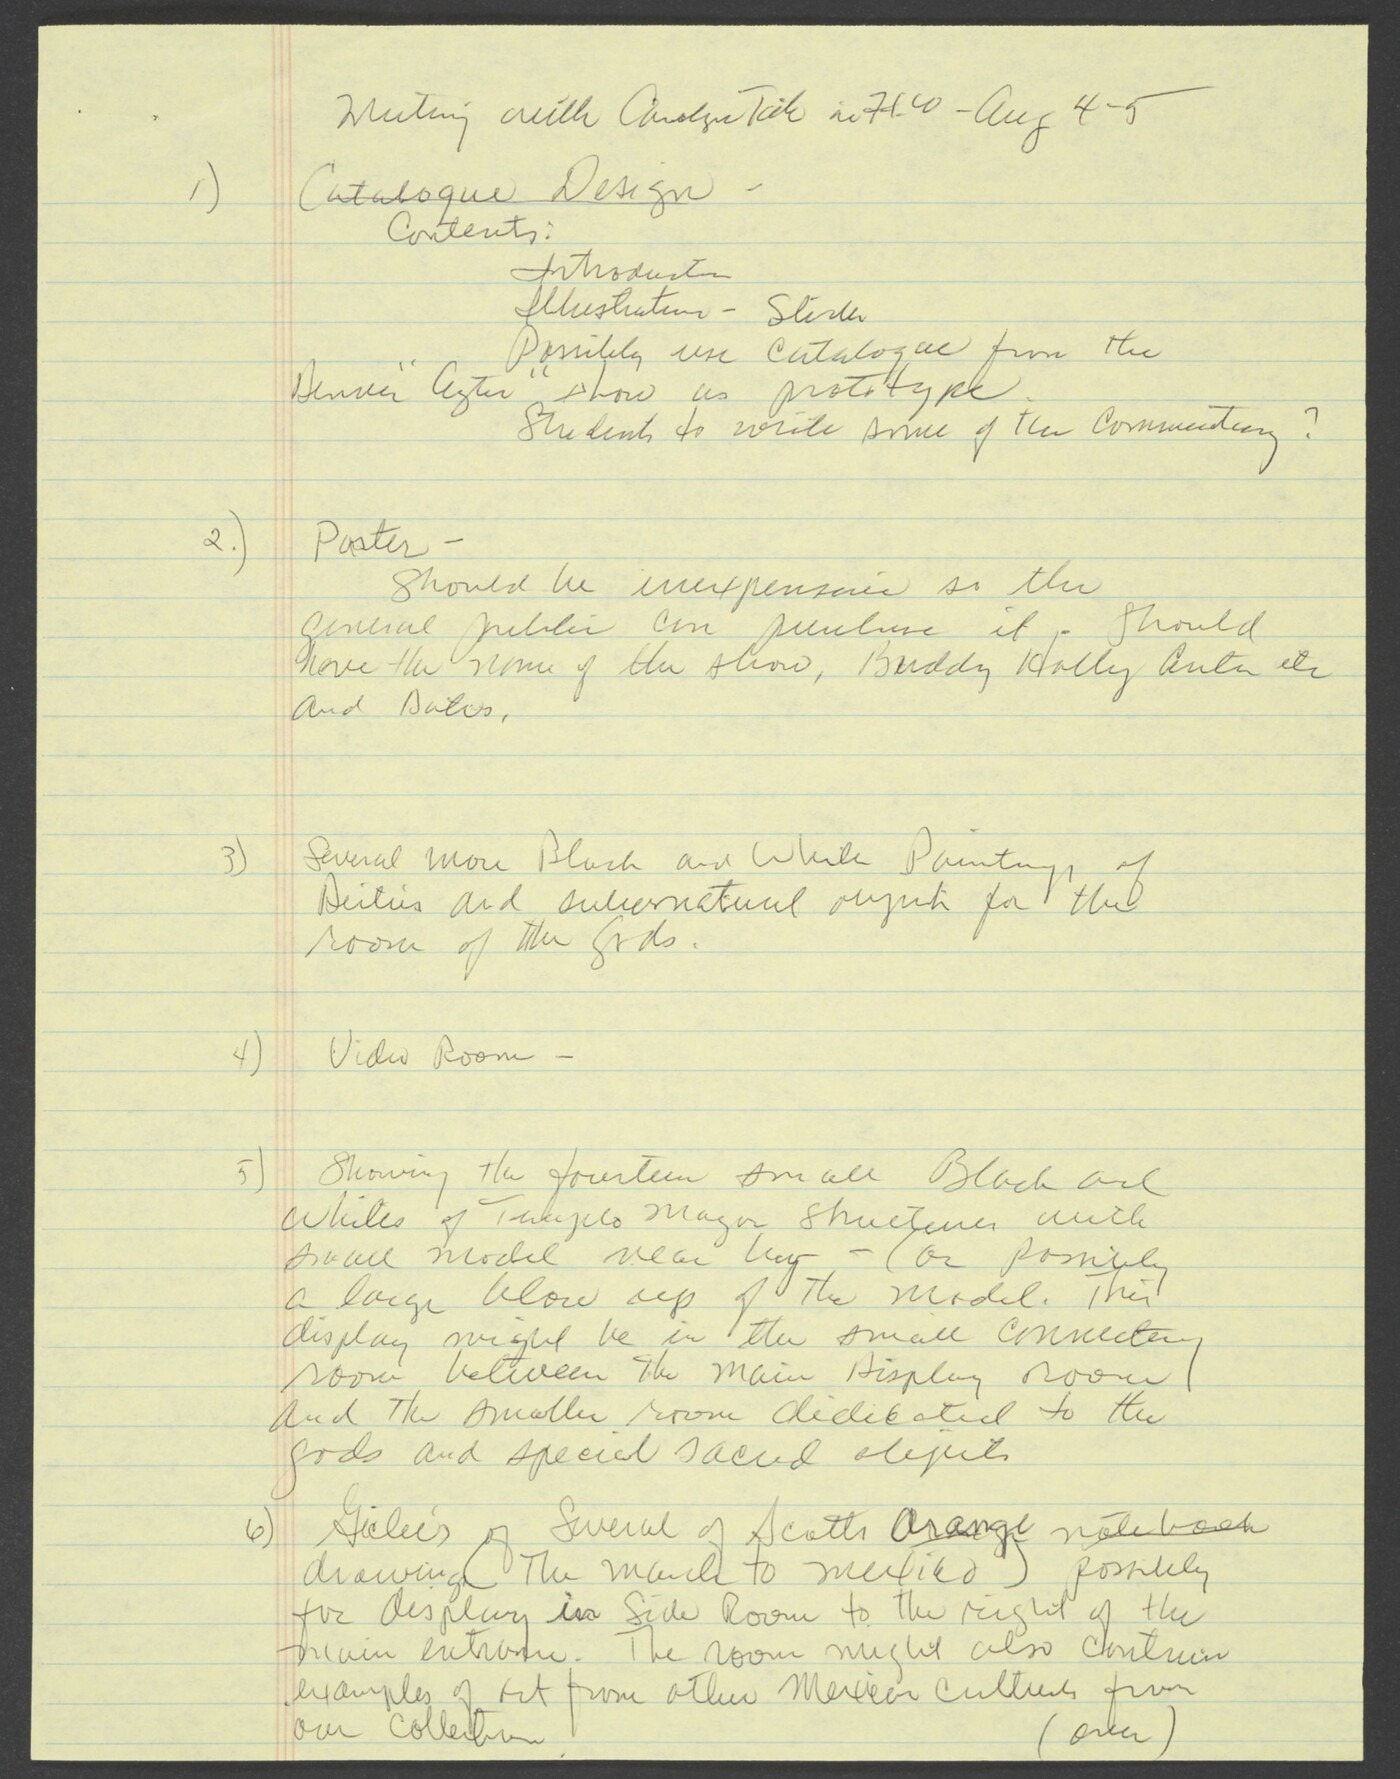 Meeting with Carolyn Tate in - Aug 4-5
1) Catalogue Design -
Contents:
Introduction
Illustrations - Slides
Possibly use catalogue from the
Denver "Aztec" show as prototype.
Students to write some of the commentary?
2.) Poster -
Should be inexpensive so the
general public can purchase it. Should
have the name of the show, Buddy Holly Center etc
and Dates.
3) Several more Black and White Paintings of
Deities and supernatural objects for the
room of the Gods.
4) Video Room -
5) Showing the fourteen small Black and
Whites of Templo Mayor Structures with
small model near by - (or possibly
a large blow up of the model. This
display might be in the small connecting
room between the main Display room
and the smaller room dedicated to the
gods and special sacred objects
6) Giclee's of Several of Scotts Orange notebook
drawings (The march to Mexico) possibly
for display in Side Room to the right of the
main entrance. The room might also contain
examples of art from other Mexican cultures from
our collection. (over)